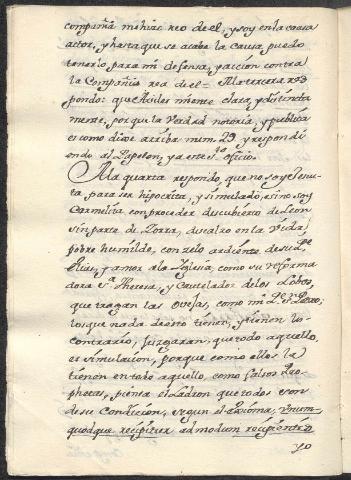 compañia me hizo reo de el, y soy en la causa
actor, y hasta que se acabe la causa, puedo
tenerlo para mi defensa, y acción contra
la Compañia rea de el = A la tercera res
pondo: que Aviles miente clara, y distincta
mente, porque la verdad notoria, y publica
es como dixe arriba num. 29 y respondi
endo al Papelon, ya este es oficio.
A la quarta respondo, que no soy Jesui
ta para ser hipocrita, y simulado, sino soy
Carmelita con proceder descubierto de Leon
sin parte de Zorra, descalzo en la vida,
pobre humilde, con zelo ardiente de su Pe.
Elias, y amor a la Iglesia, como su reforma
dora Sta. Theresa, y Cautelador de los Lobos,
que tragan las Ovejas, como mi Pe. Sn.
los que nada de esto tienen, y tienen lo
contrario, juzgaran, que todo aquello,
es simulacion, porque como ellos la
tienen en todo aquello, como falsos Pro
phetas, piensa el Ladron que todos son
de su Condicion, segun el Axioma, Unum
quodque recipitur ad modum recipientis
yo